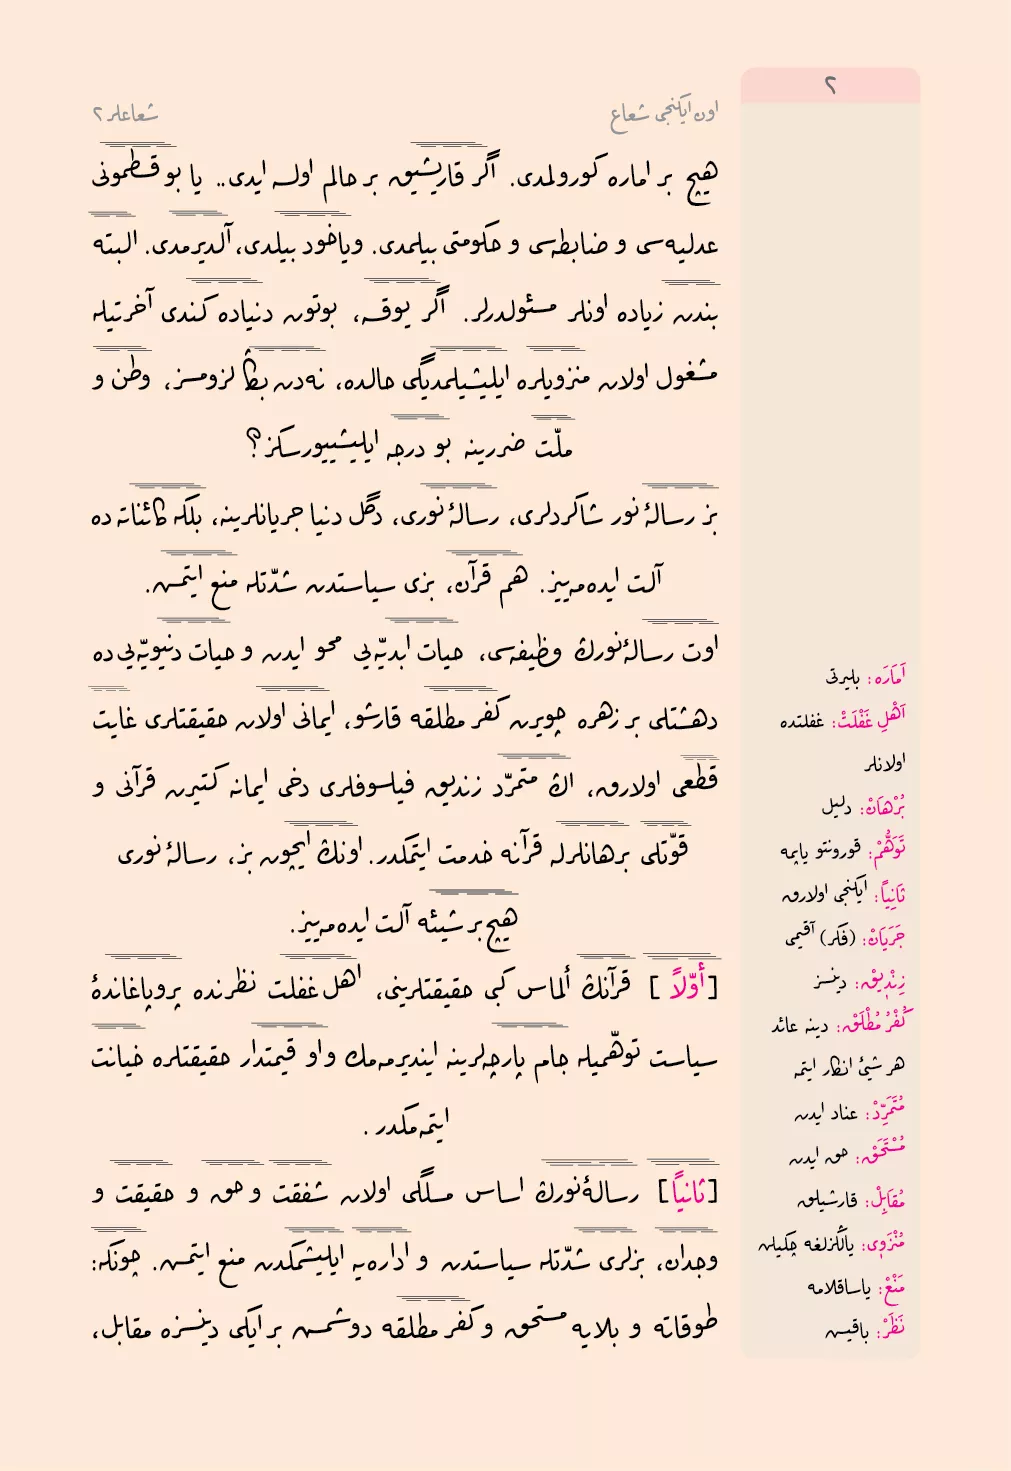 ٢
اون ايكنجى شعاع
شعاعلر ٢
هيچ بر اماره كورولمدى. اگر قاريشيق بر حالم اولسه ايدى.. يا بو قسطمونى
عدليه‌سى و ضابطه‌سى و حكومتى بيلمدى. وياخود بيلدى، آلديرمدى. البته
بندن زياده اونلر مسئولدرلر. اگر يوقسه، بوتون دنياده كندى آخرتيله
مشغول اولان منزويلره ايليشيلمديگى حالده، نه‌دن بڭا لزومسز، وطن و
ملّت ضررينه بو درجه ايليشييورسكز؟
بز رسالۀ نور شاكردلرى، رسالۀ نورى، دگل دنيا جريانلرينه، بلكه كائناته ده
آلت ايده‌مه‌ييز. هم قرآن، بزى سياستدن شدّتله منع ايتمش.
اوت رسالۀ نورڭ وظيفه‌سى، حيات ابديّه‌يى محو ايدن و حيات دنيويّه‌يى ده
دهشتلى بر زهره چويرن كفر مطلقه قارشو، ايمانى اولان حقيقتلرى غايت
قطعى اولارق، اڭ متمرّد زنديق فيلسوفلرى دخى ايمانه كتيرن قرآنى و
قوّتلى برهانلرله قرآنه خدمت ايتمكدر. اونڭ ايچون بز، رسالۀ نورى
هيچ بر شيئه آلت ايده‌مه‌ييز.
[أوّلاً] قرآنڭ ألماس كبى حقيقتلرينى، اهل غفلت نظرنده پروپاغاندۀ
سياست توهّميله جام پارچه‌لرينه اينديرمه‌مك و او قيمتدار حقيقتلره خيانت
ايتمه‌مكدر.
[ثانياً] رسالۀ نورڭ اساس مسلگى اولان شفقت و حق و حقيقت و
وجدان، بزلرى شدّتله سياستدن و اداره‌يه ايليشمكدن منع ايتمش. چونكه:
طوقاته و بلايه مستحق و كفر مطلقه دوشمش بر ايكى دينسزه مقابل،
اَمَارَه: بليرتى
اَهْلِ غَفْلَتْ: غفلتده
اولانلر
بُرْهَانْ: دليل
تَوَهُّمْ: قورونتو ياپمه
ثَانِياً: ايكنجى اولارق
جَرَيَانْ: (فكر) آقيمى
زِنْدِيقْ: دينسز
كُفْرُ مُطْلَقْ: دينه عائد
هر شيئ انكار ايتمه
مُتَمَرِّدْ: عناد ايدن
مُسْتَحَقْ: حق ايدن
مُقَابِلْ: قارشيلق
مُنْزَوِى: ياڭلزلغه چكيلن
مَنْعْ: ياساقلامه
نَظَرْ: باقيش